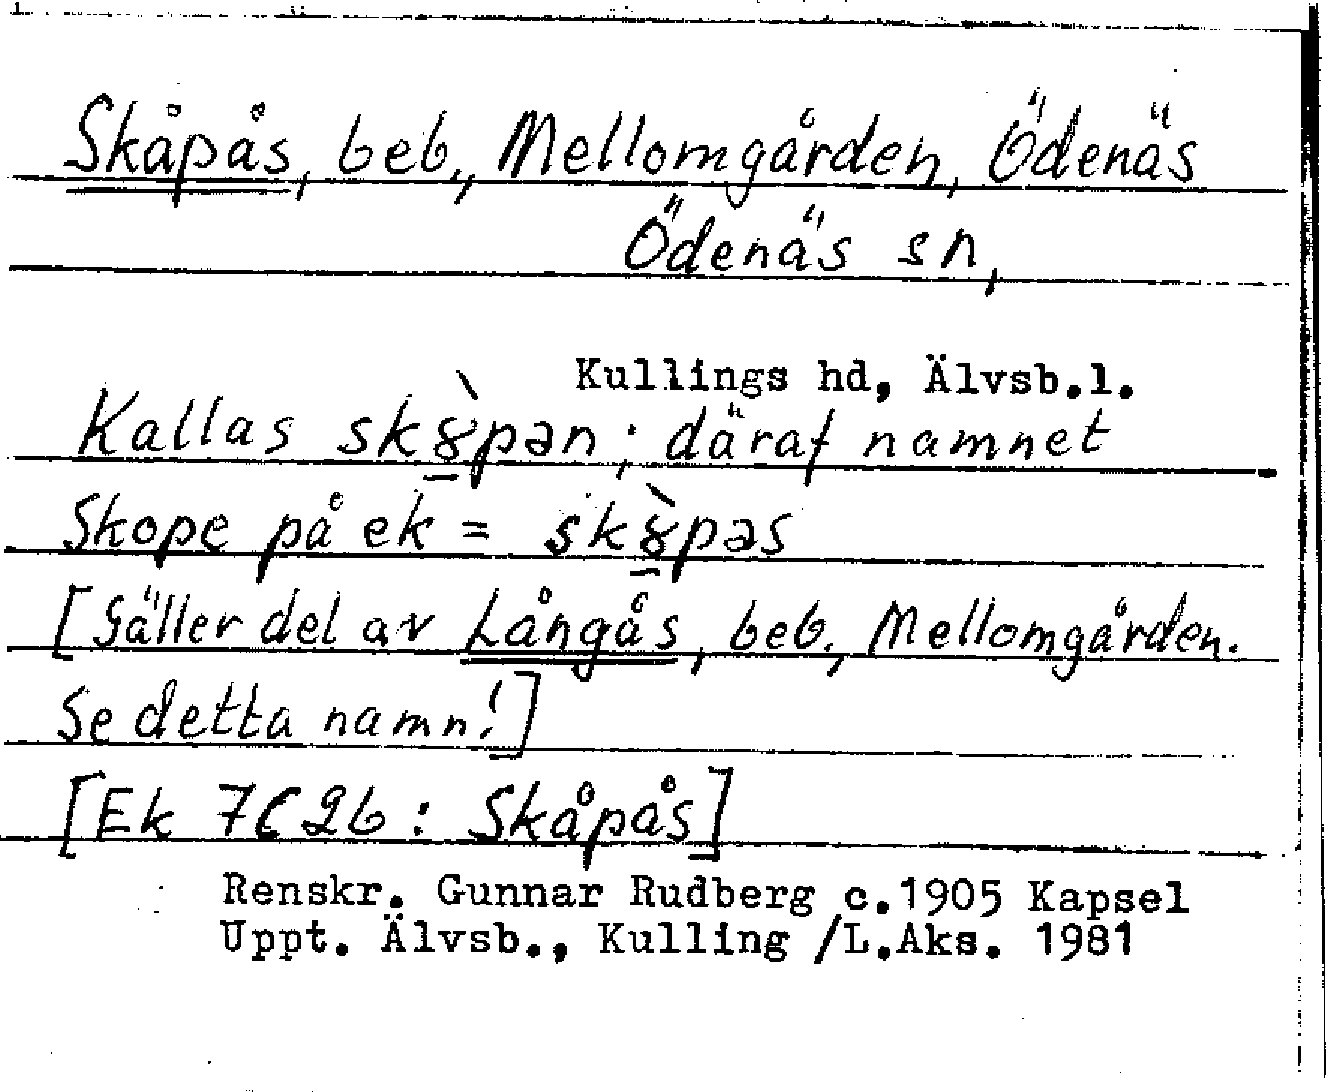 Skåpås, beb., Mellomgården, Ödenäs
Ödenäs sn,
Kullings hd, Älvsb.l.
Kallas sk8̲̀pən; däraf namnet
Skope på ek = sk8̲̀pəs
[Gäller del av Långås, beb., Mellomgården.
Se detta namn!]
[Ek 7C2b: Skåpås]
Renskr. Gunnar Rudberg c.1905 Kapsel
Uppt. Älvsb., Kulling /L.Aks. 1981